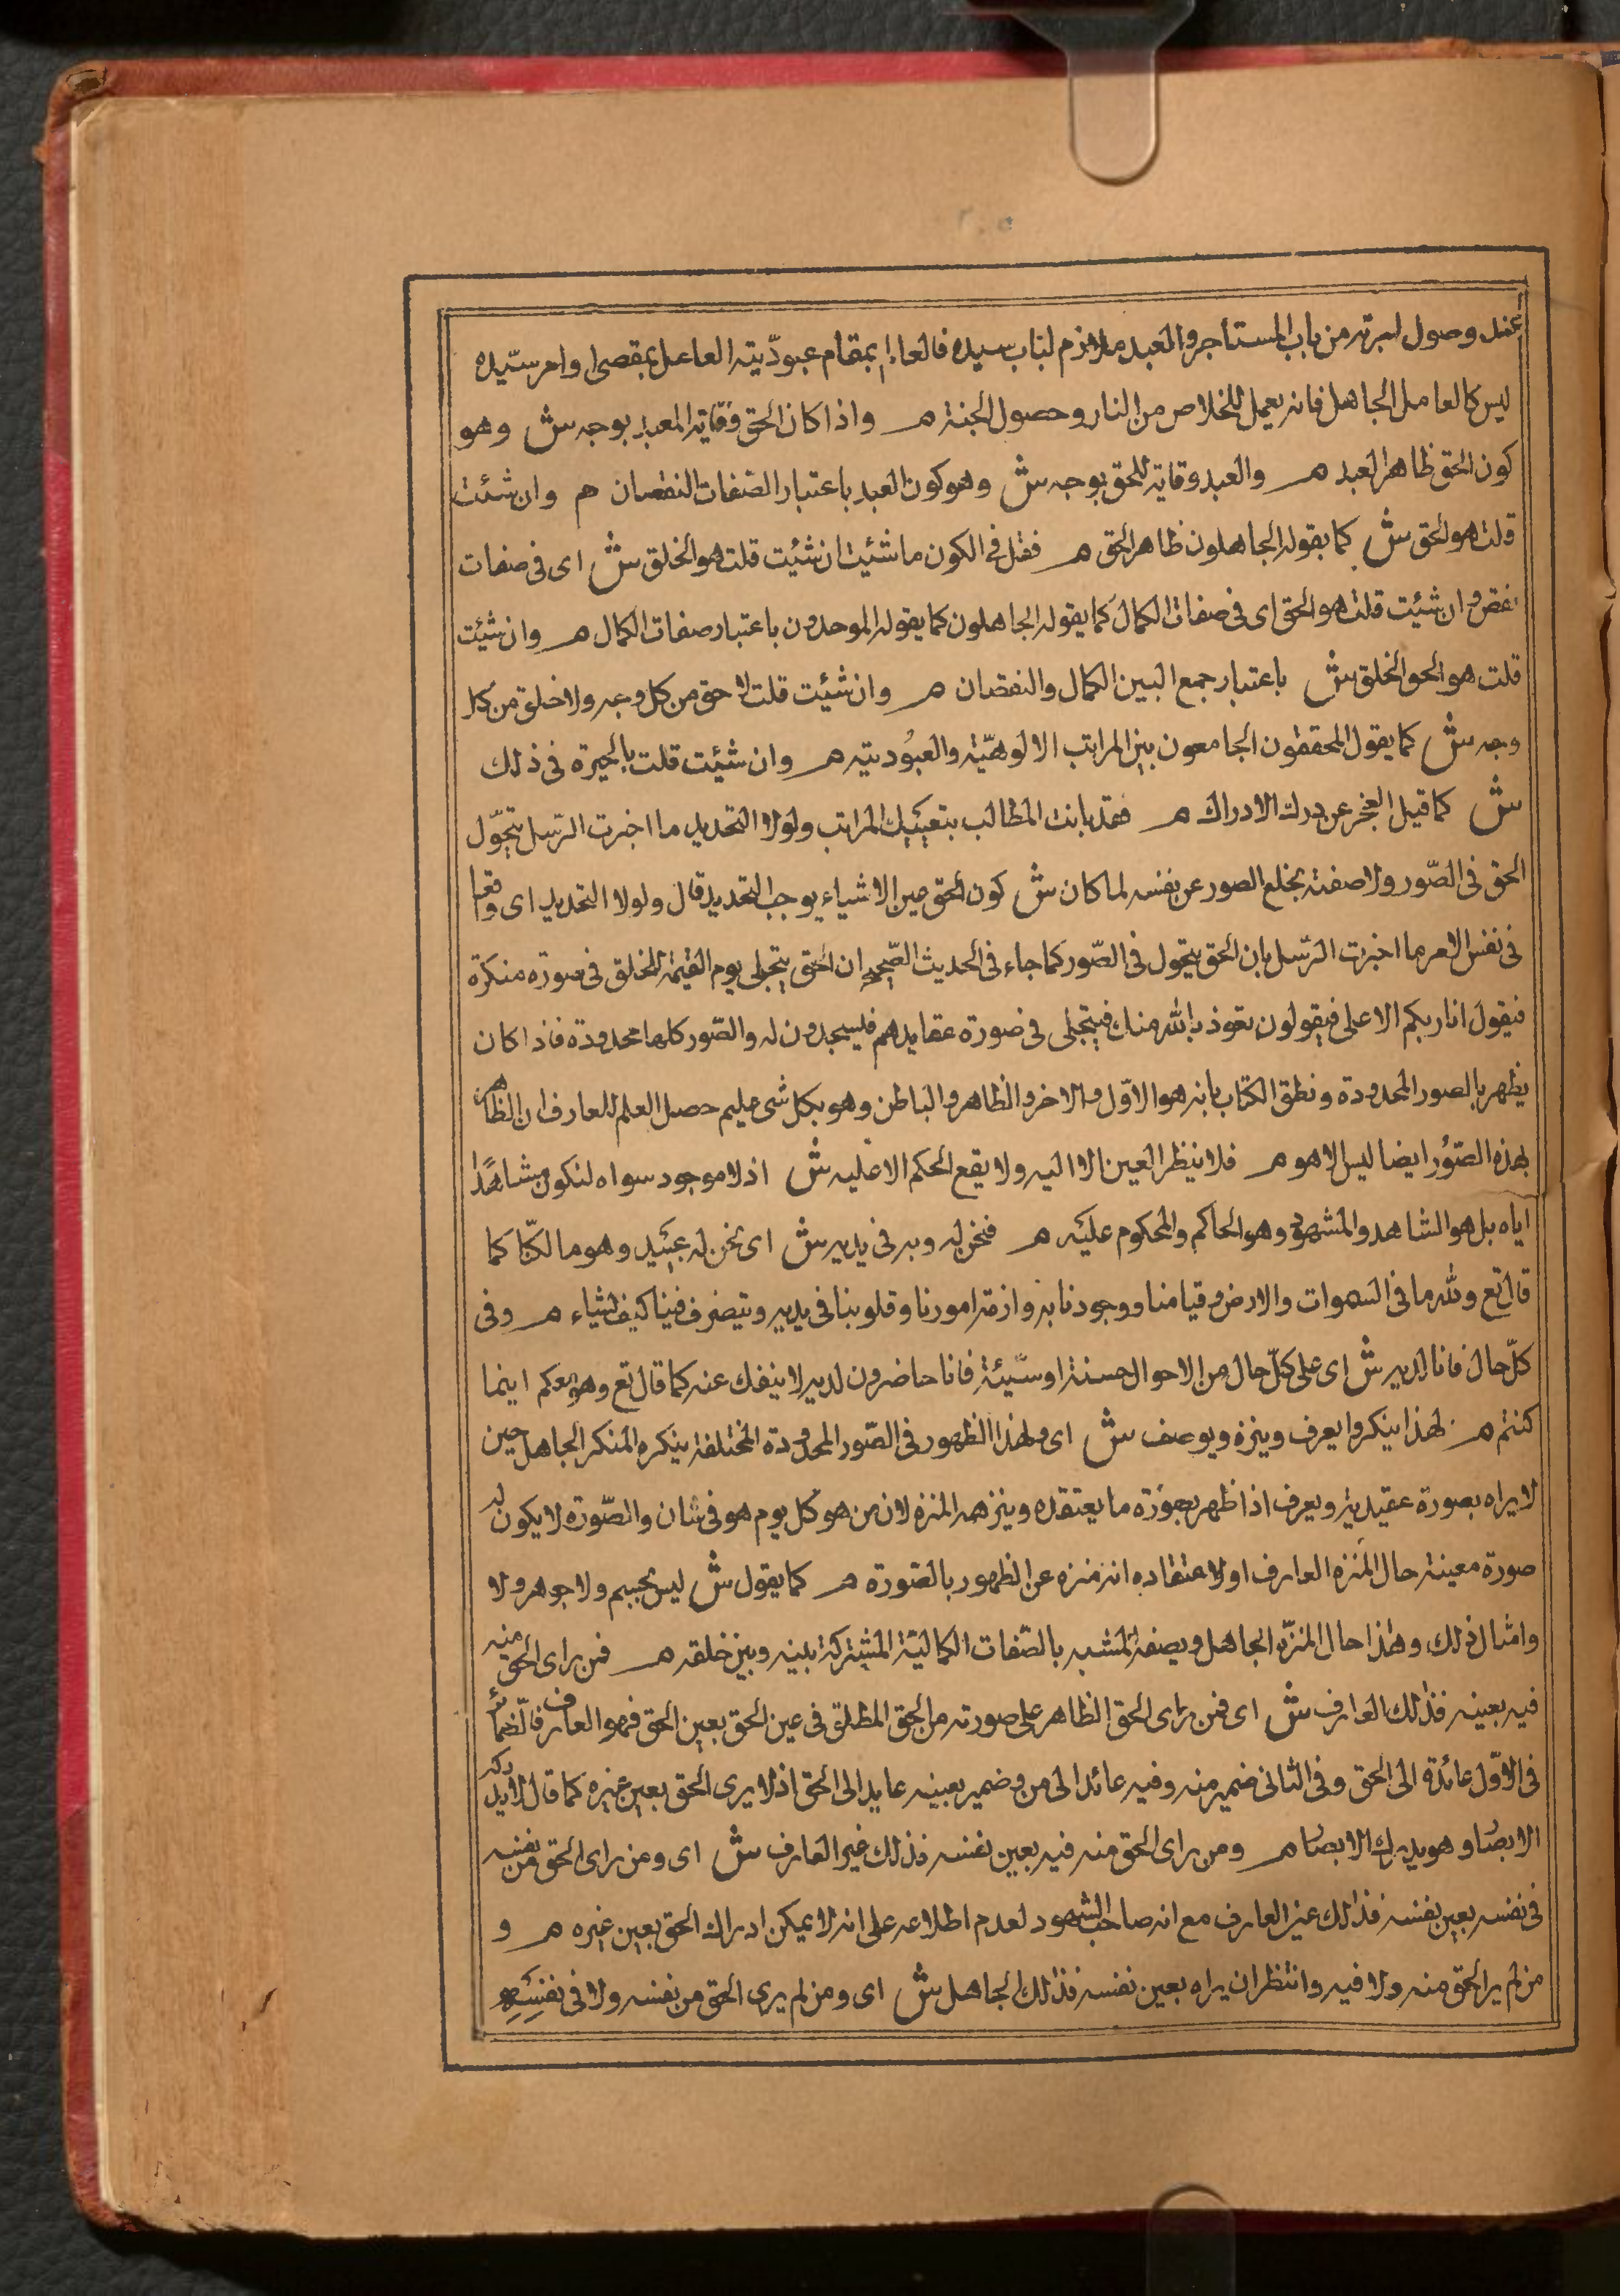 عند وصول اجرته من باب المستأجر والعبد ملازم لباب سيده فالعالم بمقام عبوديته العامل بمقصى اوامر سيّده
ليس كالعامل الجاهل فانه يعمل للخلاص من النار وحصول الجنة م واذا كان الحق وقاية المعبد بوجه ش وهو
كون الحق ظاهر العبد م والعبد وقاية للحق بوجه ش وهو كون العبد باعتبار الصفات النقصان م وان شئت
قلت هو الحق ش كما يقوله الجاهلون ظاهر الحق م فقل فى الكون ما شئت ان شئت قلت هو الخلق ش اى فى صفات
نقص وان شئت قلت هو الحق اى فى صفات الكمال كما يقوله الجاهلون كما يقوله الموحدون باعتبار صفات الكمال م وان شئت
قلت هو الحق الخلق ش باعتبار جمع البين الكمال والنقصان م وان شئت قلت لا حق من كل وجه ولا خلق من كل
وجه ش كما يقول المحققون الجامعون بين المراتب الالوهيّة والعبُوديته م وان شئت قلت بالحيرة فى ذلك
ش كما قيل العجز عن درك الادراك م فقد بانت المطالب بتعيينك المراتب ولولا التحديد ما اخبرت الرّسل بتحوّل
الحق فى الصّور ولا صفته بخلع الصور عن نفسه لما كان ش كون الحق عين الاشياء يوجب التحديد قال ولولا التحديد اى واقعا
فى نفس الامر ما اخبرت الرّسل بان الحق يتحول فى الصّور كما جاء فى الحديث الصّحيح ان الحق يتجلى يوم القيمة للخلق فى صورة منكرة
فيقول انا ربكم الاعلى فيقولون نعوذ بالله منك فيتجلى فى صورة عقايدهم فيسجدون له والصّور كلها محدودة فاذا كان
يظهر بالصور المحدودة ونطق الكتاب بانه هو الاوّل والاخر والظاهر والباطن وهو بكل شى عليم حصل العلم للعارف ان الظاهر
بهذه الصّوُر ايضا ليس الا هو م فلا ينظر العين الا اليه ولا يقع الحكم الا عليه ش اذ لا موجود سواه لنكون مشاهدًا
اياه بل هو الشاهد والمشهود وهو الحاكم والمحكوم عليه م فنحن له وبه فى يديه ش اى نحن له عبيد وهو مالكنا كما
قال تع ولله ما فى السموات والارض وقيامنا ووجودنا به وازمة امورنا وقلوبنا فى يديه ويتصرف فينا كيف يشاء م وفى
كلّ حال فانا لديه ش اى على كلّ حال من الاحوال حسنة او سيّئة فانا حاضرون لديه لا ينفك عنه كما قال تع وهو معكم اينما
كنتم م لهذا ينكر ويعرف وينزه ويوصف ش اى ولهذا الظهور فى الصّور المحدودة المختلفة ينكره المنكر الجاهل حين
لا يراه بصورة عقيديته ويعرف اذا ظهر بصُورة ما يعتقده وينزهه المنزه لان من هو كل يوم هو فى شان والصّورة لا يكون له
صورة معينة حال المنزه العارف او لاعتقاده انه منزه عن الظهور بالصّورة م كما يقول ش ليس بجسم ولا جوهر ولا
وامثال ذلك وهذا حال المنزّه الجاهل ويصفه المشبه بالصّفات الكمالية المشتركة بينه وبين خلقه م فمن راى الحق منه
فيه بعينه فذلك العارف ش اى فمن راى الحق الظاهر على صورته من الحق المطلق فى عين الحق بعين الحق فهو العارف فالضمائر
فى الاوّل عائدة الى الحق وفى الثانى ضمير منه وفيه عائد الى من وضمير بعينه عايد الى الحق اذ لا يرى الحق بعين غيره كما قال لا يدركه
الابصار وهو يدرك الابصار م ومن راى الحق منه فيه بعين نفسه فذلك غير العارف ش اى ومن راى الحق من نفسه
فى نفسه بعين نفسه فذلك غير العارف مع انه صاحب الشهود لعدم اطلاعه على انه لا يمكن ادراك الحق بعين غيره م و
من لم ير الحق منه ولا فيه وانتظر ان يراه بعين نفسه فذلك الجاهل ش اى ومن لم يرى الحق من نفسه ولا فى نفسِهِ